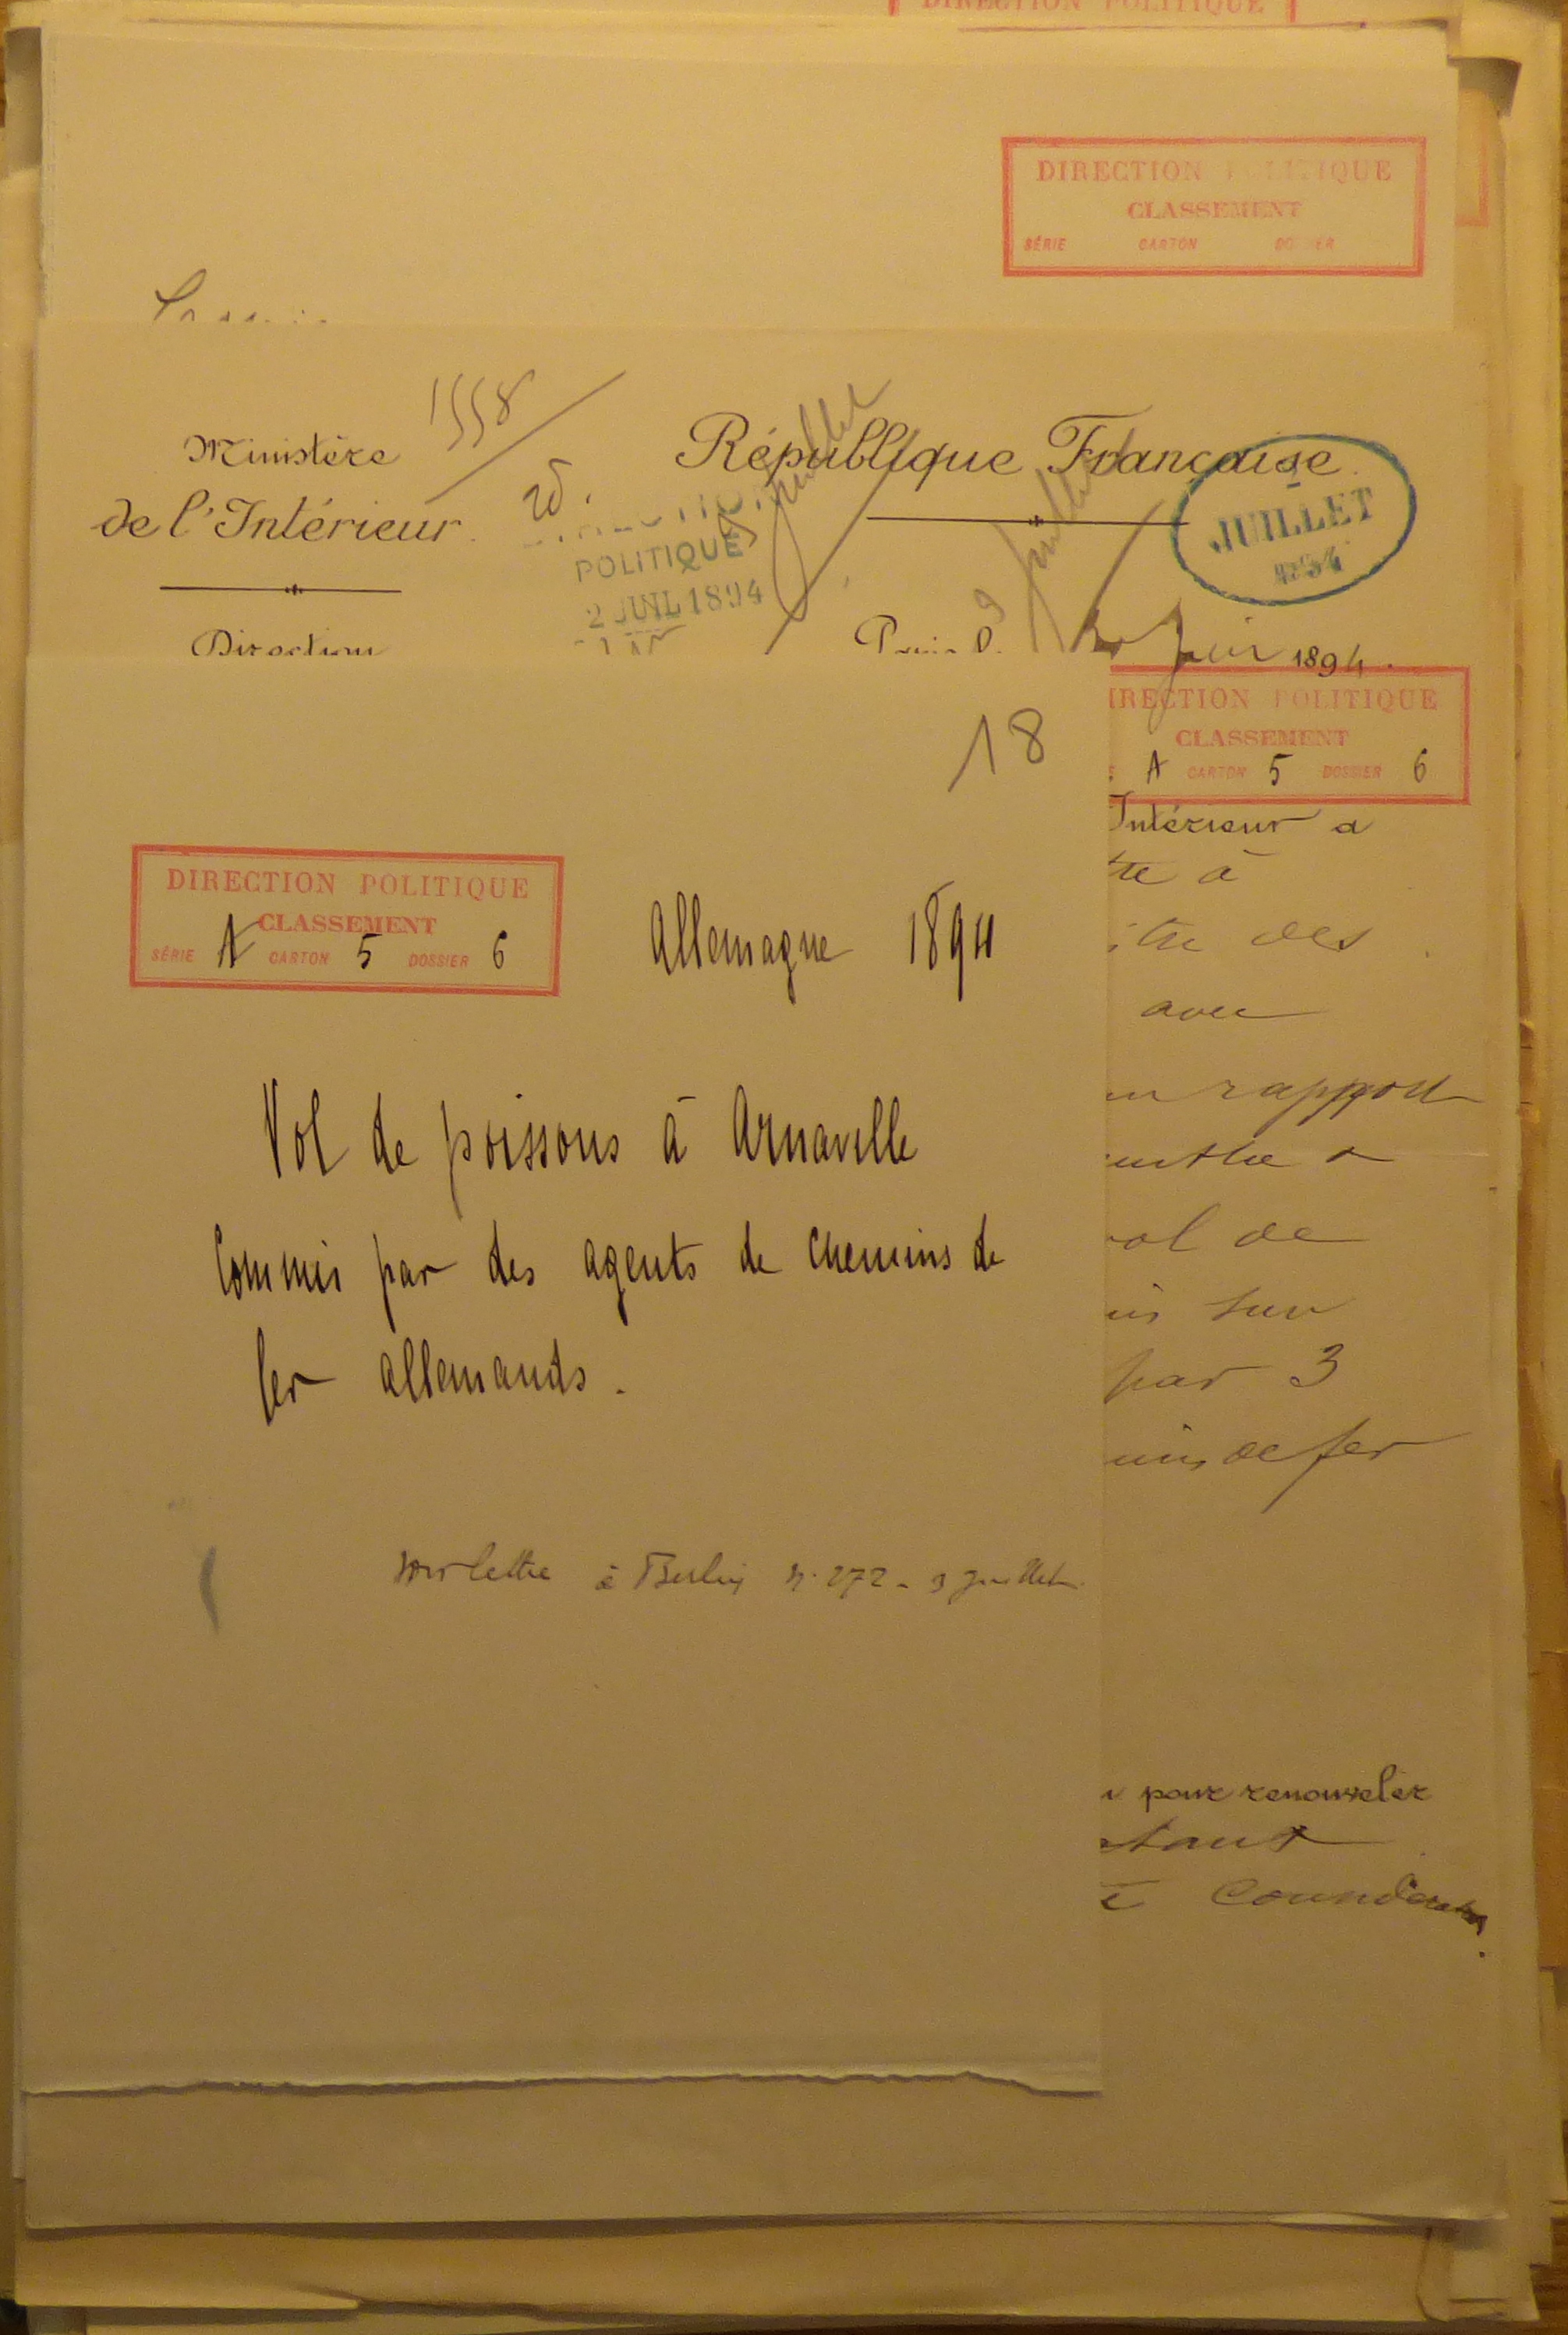 DIRECTION POLITIQUE
DIRECTION POLITIQUE
CLASSEMENT
SÉRIE CARTON DOSSIER
Ministère
de l'Intérieur
Direction
1558
République Française
POLITIQUE
2 JUIL 1894
juillet
JUILLET
1894
Juin 1894.
DIRECTION POLITIQUE
CLASSEMENT
A CARTON 5 DOSSIER 6
18
DIRECTION POLITIQUE
CLASSEMENT
SÉRIE A CARTON 5 DOSSIER 6
Allemagne 1894
Vol de poissons à Arnaville
Commis par des agents de chemins de
fer allemands.
voir lettre à Berlin n. 272 - 3 juillet
Intérieur a
tre à
des
avec
rapport
de
sur
par 3
de fer
pour renouveler